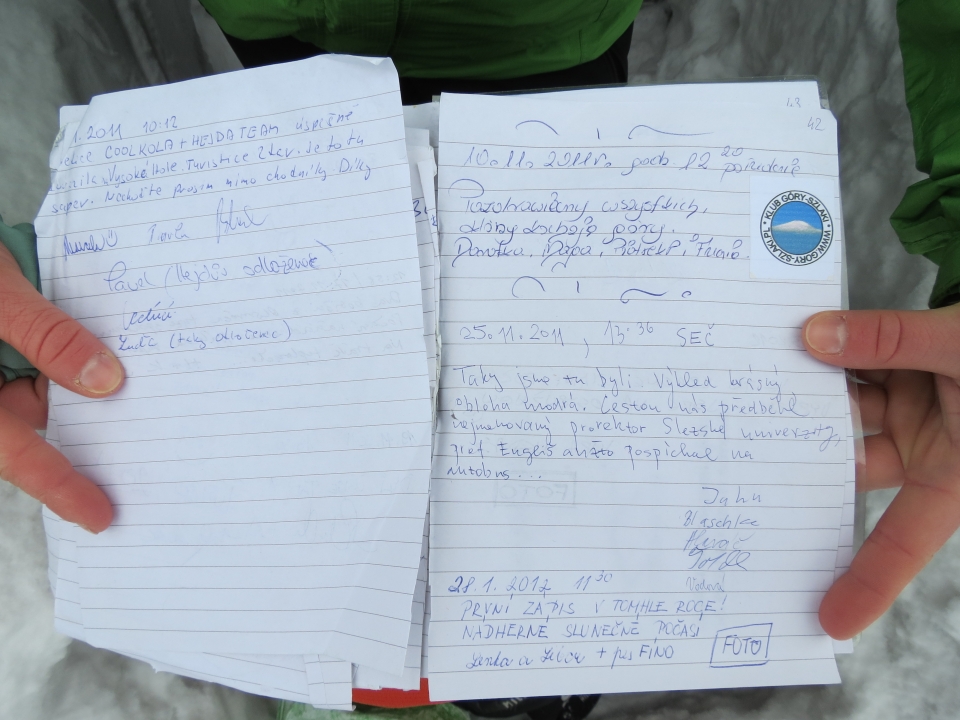 1.2011 10:12
COOLKOLA + HEJDA TEAM úspěšně
Vysoké Hole. Turistice zdar. Je to tu
super. Nechoďte prosím mimo chodníky. Díky
Pavel (Nejdřív odloženie)
(taky odloženie)
42
10.11.2011r. godz. 12 20
Pozdrawiamy wszystkich,
którzy kochają góry.
Dorotka,
KLUB GÓRY-SZLAKI
WWW.GORY-SZLAKI.PL
25.11.2011, 13:36 SEČ
Taky jsme tu byli. Výhled krásný
obloha modrá. Cestou nás předběhl
nejmenovaný prorektor Slezské univerzity,
prof. Engliš anžto pospíchal na
autobus...
Jahn
Blaschke
28.1.2012 11 30
PRVNÍ ZÁPIS V TOMHLE ROCE!
NÁDHERNÉ SLUNEČNÉ POČASÍ
Lenka a Libor + pes FÍNO
FOTO